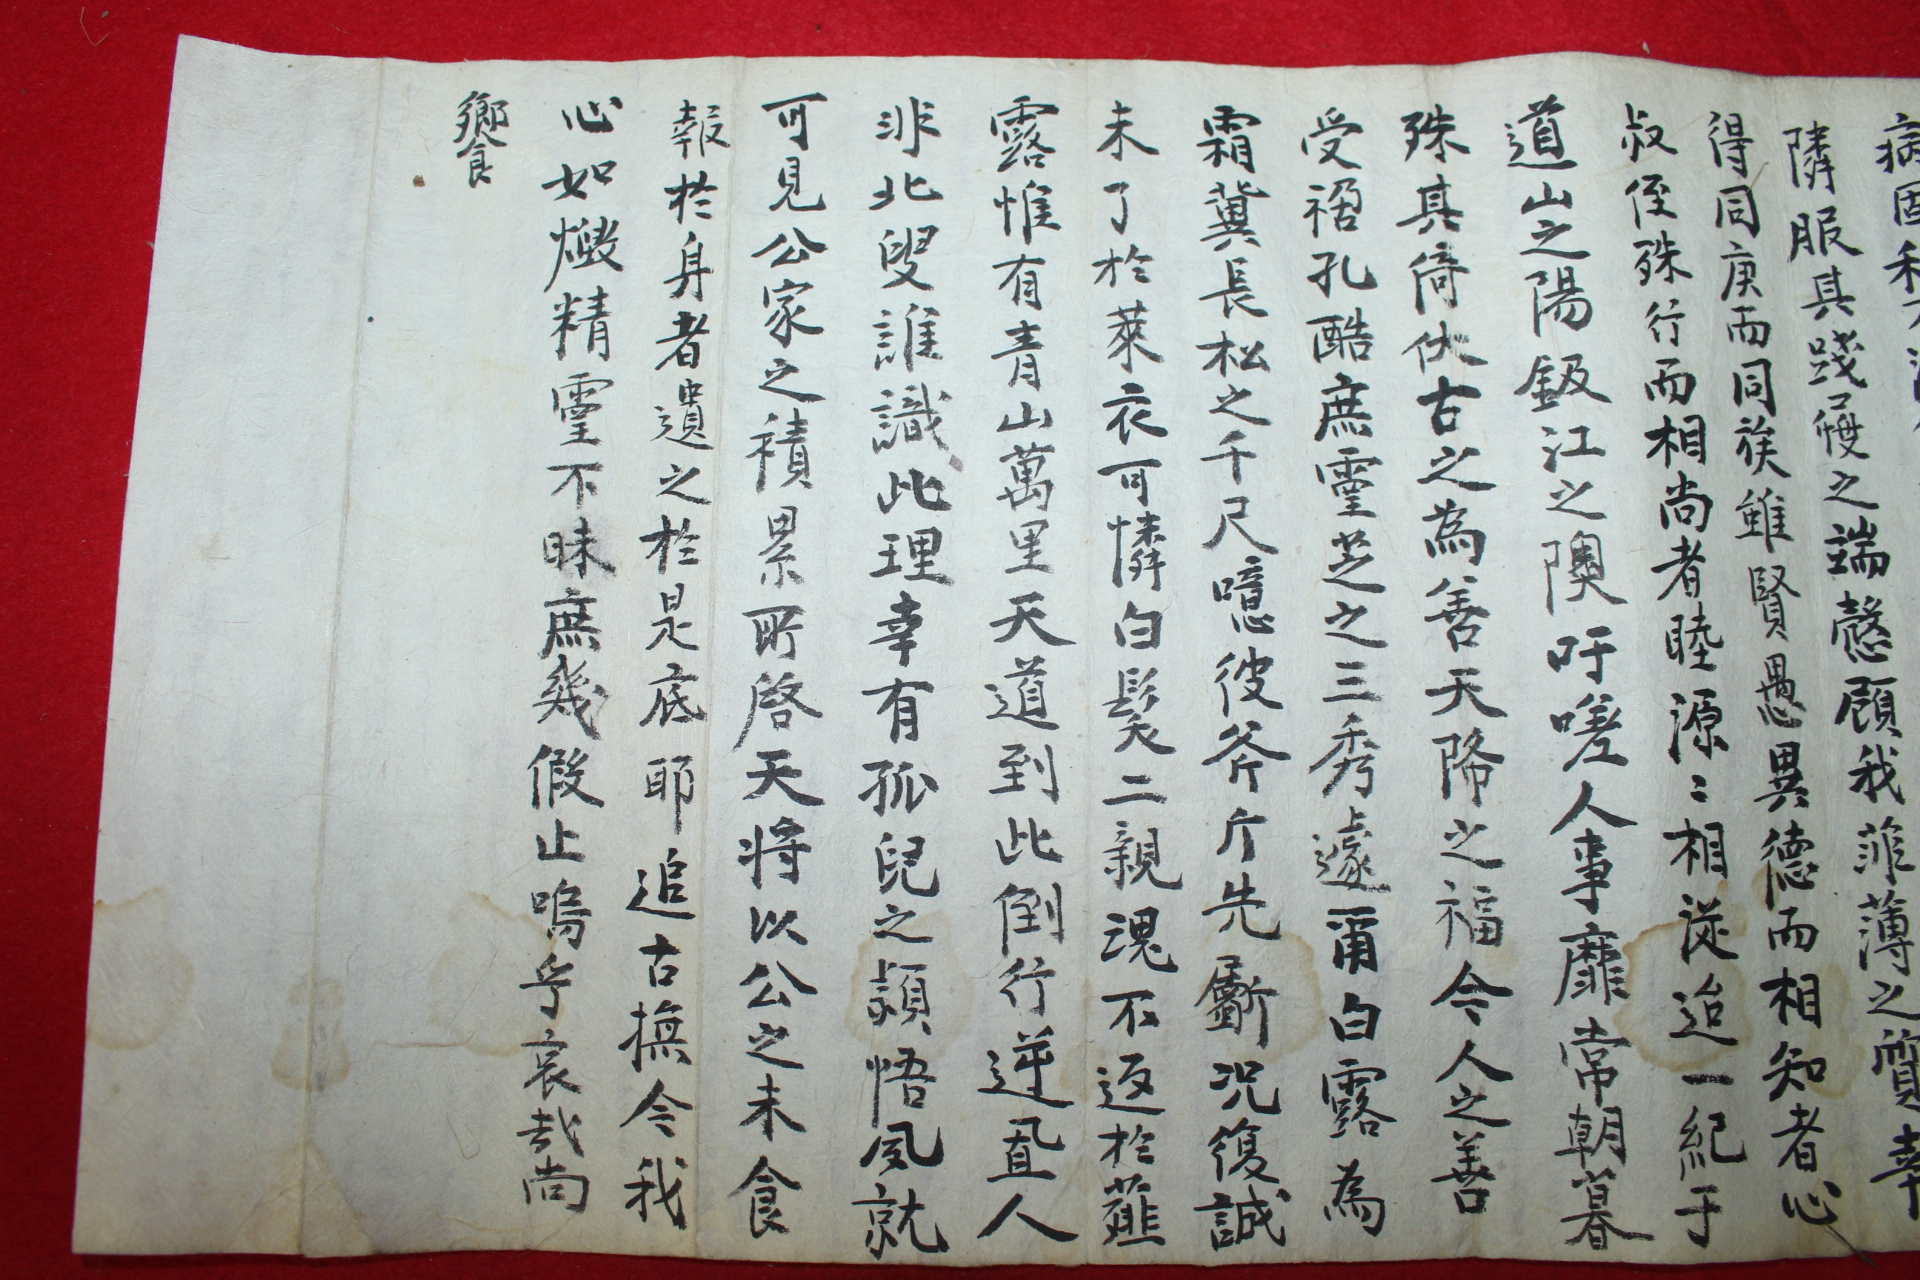 病固和不
隣服具踐履之端慤顧我菲薄之質幸
得同庚而同族雖賢愚異德而相知者心
叔侄殊行而相尚者睦源〻相從迨一紀于
道山之陽鈒江之隩吁嗟人事靡常朝暮
殊其倚伏古之為善天降之福今人之善
受禍孔酷庶靈芝之三秀遽爾白露為
霜冀長松之千尺噫彼斧斤先斸況復誠
未了於萊衣可憐白髮二親魂不返於薤
露惟有青山萬里天道到此倒行逆直人
非北叟誰識此理幸有孤兒之穎悟夙就
可見公家之積累所啓天將以公之未食
報於身者遺之於是底耶追古撫今我
心如燬精靈不昧庶幾假止嗚乎哀哉尚
饗